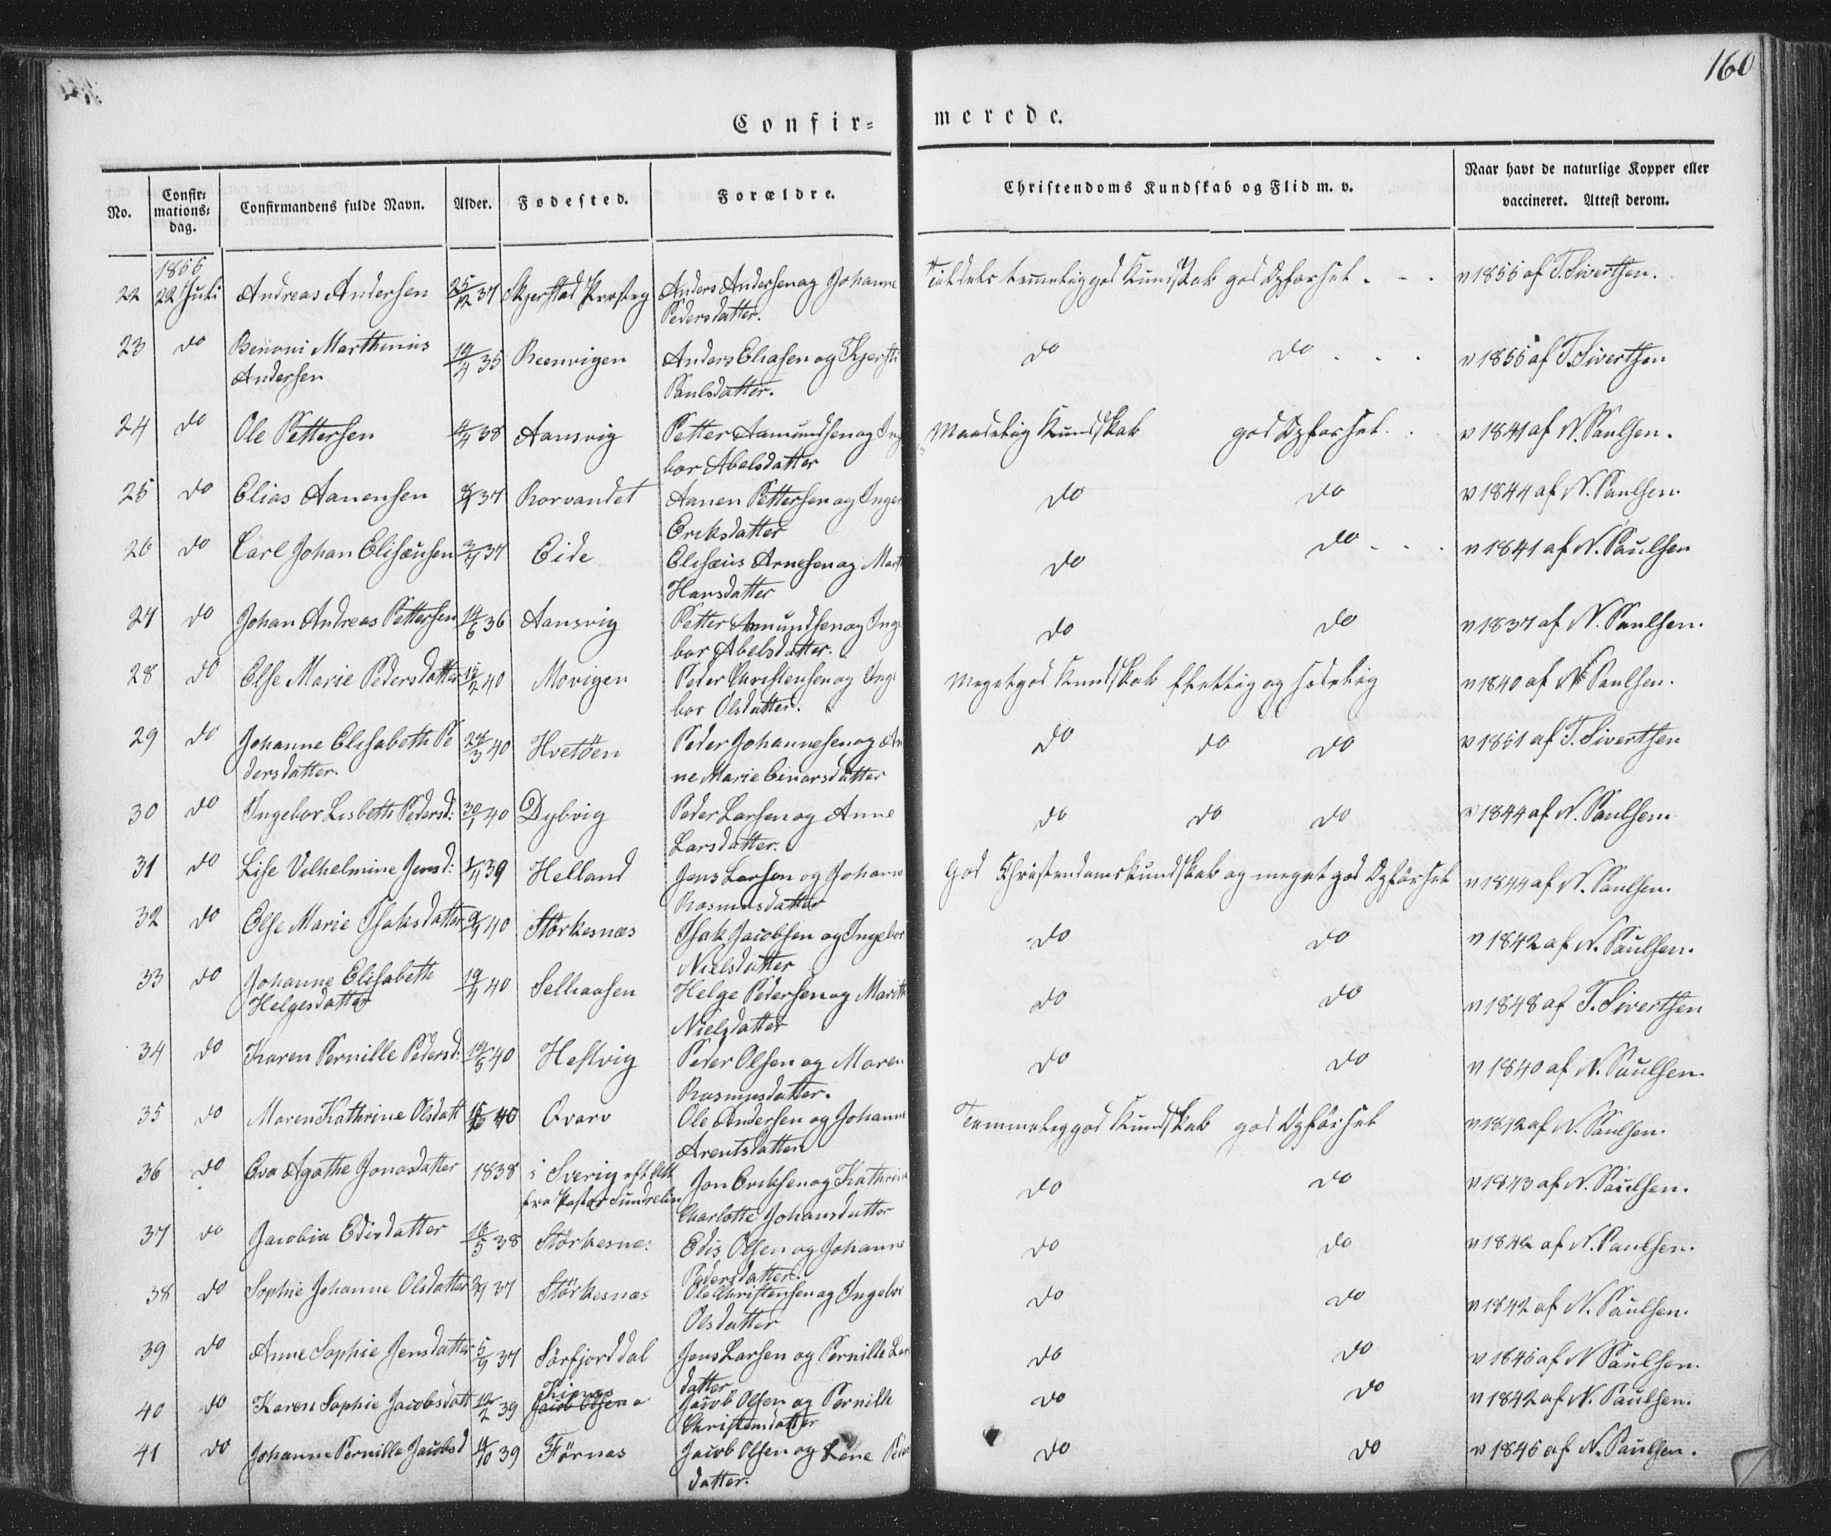 160
Confir- merede.
No. Confir- mations- dag. Confirmandens fulde Navn. Alder. Fødested. Forældre. Christendoms Kundskab og Flid m. v. Naar havt de naturlige Kopper eller vaccineret. Attest derom.
1855
22 22 Juli Andreas Andersen 25/12 37 Skjerstad Præsteg Anders Andersen og Johanne Pedersdatter. temmelig god Kundskab god Opførsel - - v 1855 af T. Sivertsen.
23 do Benoni Marthinus Andersen 19/4 35 Reenvigen Anders Eliasen og Kjersti Paulsdatter. do do - - v 1855 af T. Sivertsen
24 do Ole Pettersen 4/4 38 Aansvig Petter Aamundsen og Ingebor Abelsdatter Maadelig Kundskab god Opførsel. v 1841 af N. Paulsen.
25 do Elias Aanensen 37 Rorvandet Aanen Pettersen og Inger Eriksdatter do do v 1844 af N. Paulsen.
26 do Carl Johan Elisæusen 37 Eide Elisæus Arnesen og Mart Hansdatter do do - - v 1841 af N. Paulsen
27 do Johan Andreas Pettersen 14/6 36 Aansvig Petter Amundsen og Ingebor Abelsdatter. do do v 1837 af N. Paulsen.
28 do Else Marie Pedersdatter 15/2 40 Movigen Peder Christensen og Ingebor Olsdatter. Meget god Kundskab flittig og sædelig v 1840 af N. Paulsen.
29 do Johanne Elisabeth Pedersdatter. 28/3 40 Hvetøen Peder Johannesen og Anne Marie Einarsdatter do do do v 1851 af T. Sivertsen
30 do Ingebor Lisbeth Pedersd: 30/1 40 Dybvig Peder Larsen og Anne Larsdatter. do do do v 1844 af N. Paulsen.
31 do Lise Vilhelmine Jensd: 1/11 39 Helland Jens Larsen og Johanne Rasmusdatter God Christendomskundskab og meget god Opførsel v 1844 af N. Paulsen.
32 do Else Marie Isaksdatter 9/1 40 Størkesnæs Isak Jacobsen og Ingebor Nielsdatter do do v 1842 af N. Paulsen.
33 do Johanne Elisabeth Helgesdatter 19/4 40 Selhaasen Helge Pedersen og Maritte Nielsdatter do do v 1848 af T. Sivertsen
34 do Karen Pernille Pedersd: 19/5 40 Hestvig Peder Olsen og Maren Rasmusdatter. do do v 1840 af N. Paulsen.
35 do Maren Kathrine Olsdatt 40 Qvarv Ole Andersen og Johanne Arentsdatter Temmelig god Kundskab god Opførsel v 1842 af N. Paulsen.
36 do Eva Agathe Jonasdatter 1838 i Sverig eft Att fra Pastor Sundelin Jon Eriksen og Kathrine Charlotte Johansdatter do do v 1843 af N. Paulsen.
37 do Jacobia Edisdatter 16/5 38 Størkesnes Edis Olsen og Johanne Pedersdatter. do do v 1842 af N. Paulsen.
38 do Sophie Johanne Olsdatter 37 Størkesnæs Ole Christensen og Ingebor Olsdatter do do v 1842 af N. Paulsen.
39 do Anne Sophie Jensdatter 5/9 37 Sørfjorddal Jens Larsen og Pernille Larsdatter do do v 1845 af N Paulsen.
40 do Karen Sophie Jacobsdatt 12/2 39 Jacob Olsen og Pernille Christensdatter do do v 1842 af N. Paulsen.
41 do Johanne Pernille Jacobsd 14/10 39 Førnæs Jacob Olsen og Lene datter. do do v 1845 af N. Paulsen.